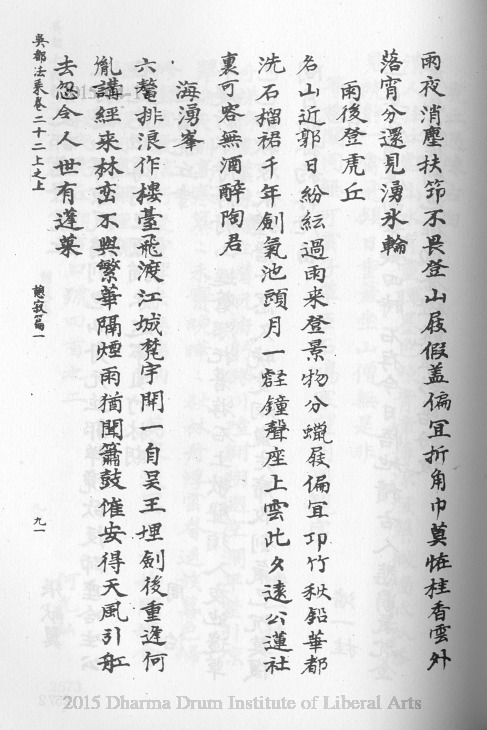 雨夜消塵扶笻不畏登山屐假蓋偏宜折角巾莫恠桂香雲外
落宵分還見湧氷輪
雨後登虎丘
名山近郭日紛紜過雨来登景物分蠟屐偏宜卭竹秋鉛華都
洗石榴裙千年劍氣池頭月一壑鐘聲座上雲此夕遠公蓮社
裏可容無酒醉陶君
海湧峯
六鼇排浪作樓臺飛渡江城梵宇開一自吳王埋劍後重逢何
胤講經来林巒不與繁華隔煙雨猶聞簫鼓催安得天風引舡
去忽令人世有蓬萊
吳都法乗卷二十二上之上
憩寂篇一
九一
2015 Dharma Drum Institute of Liberal Arts